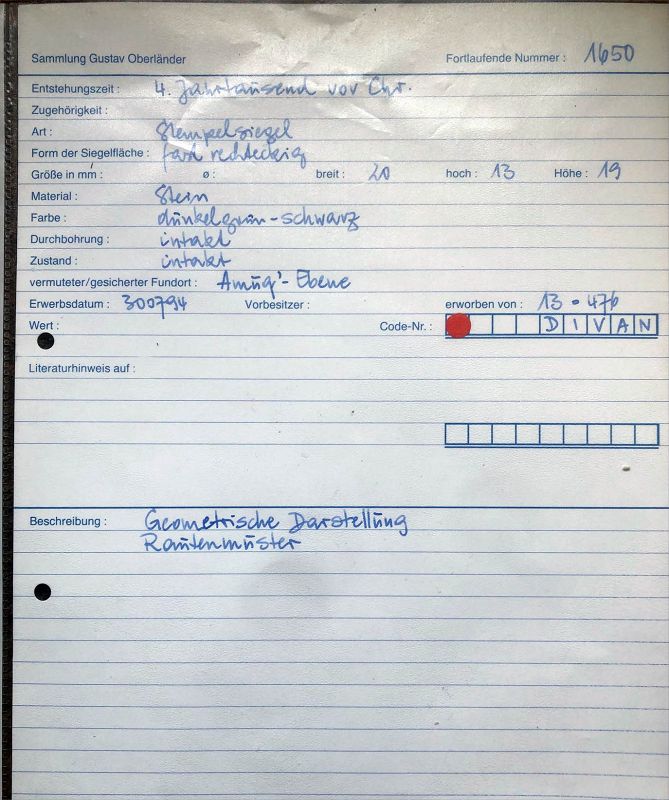 Sammlung Gustav Oberländer Fortlaufende Nummer : 1650
Entstehungszeit : 4. Jahrtausend vor Chr.
Zugehörigkeit :
Art : Stempelsiegel
Form der Siegelfläche : fast rechteckig
Größe in mm : ø : breit : 20 hoch : 13 Höhe : 19
Material : Stein
Farbe : dunkelgrün-schwarz
Durchbohrung : intakt
Zustand : intakt
vermuteter/gesicherter Fundort : Amuq'-Ebene
Erwerbsdatum : 300794 Vorbesitzer : erworben von : 13 • 476
Wert : Code-Nr. : DIVAN
Literaturhinweis auf :
Beschreibung : Geometrische Darstellung
Rautenmuster